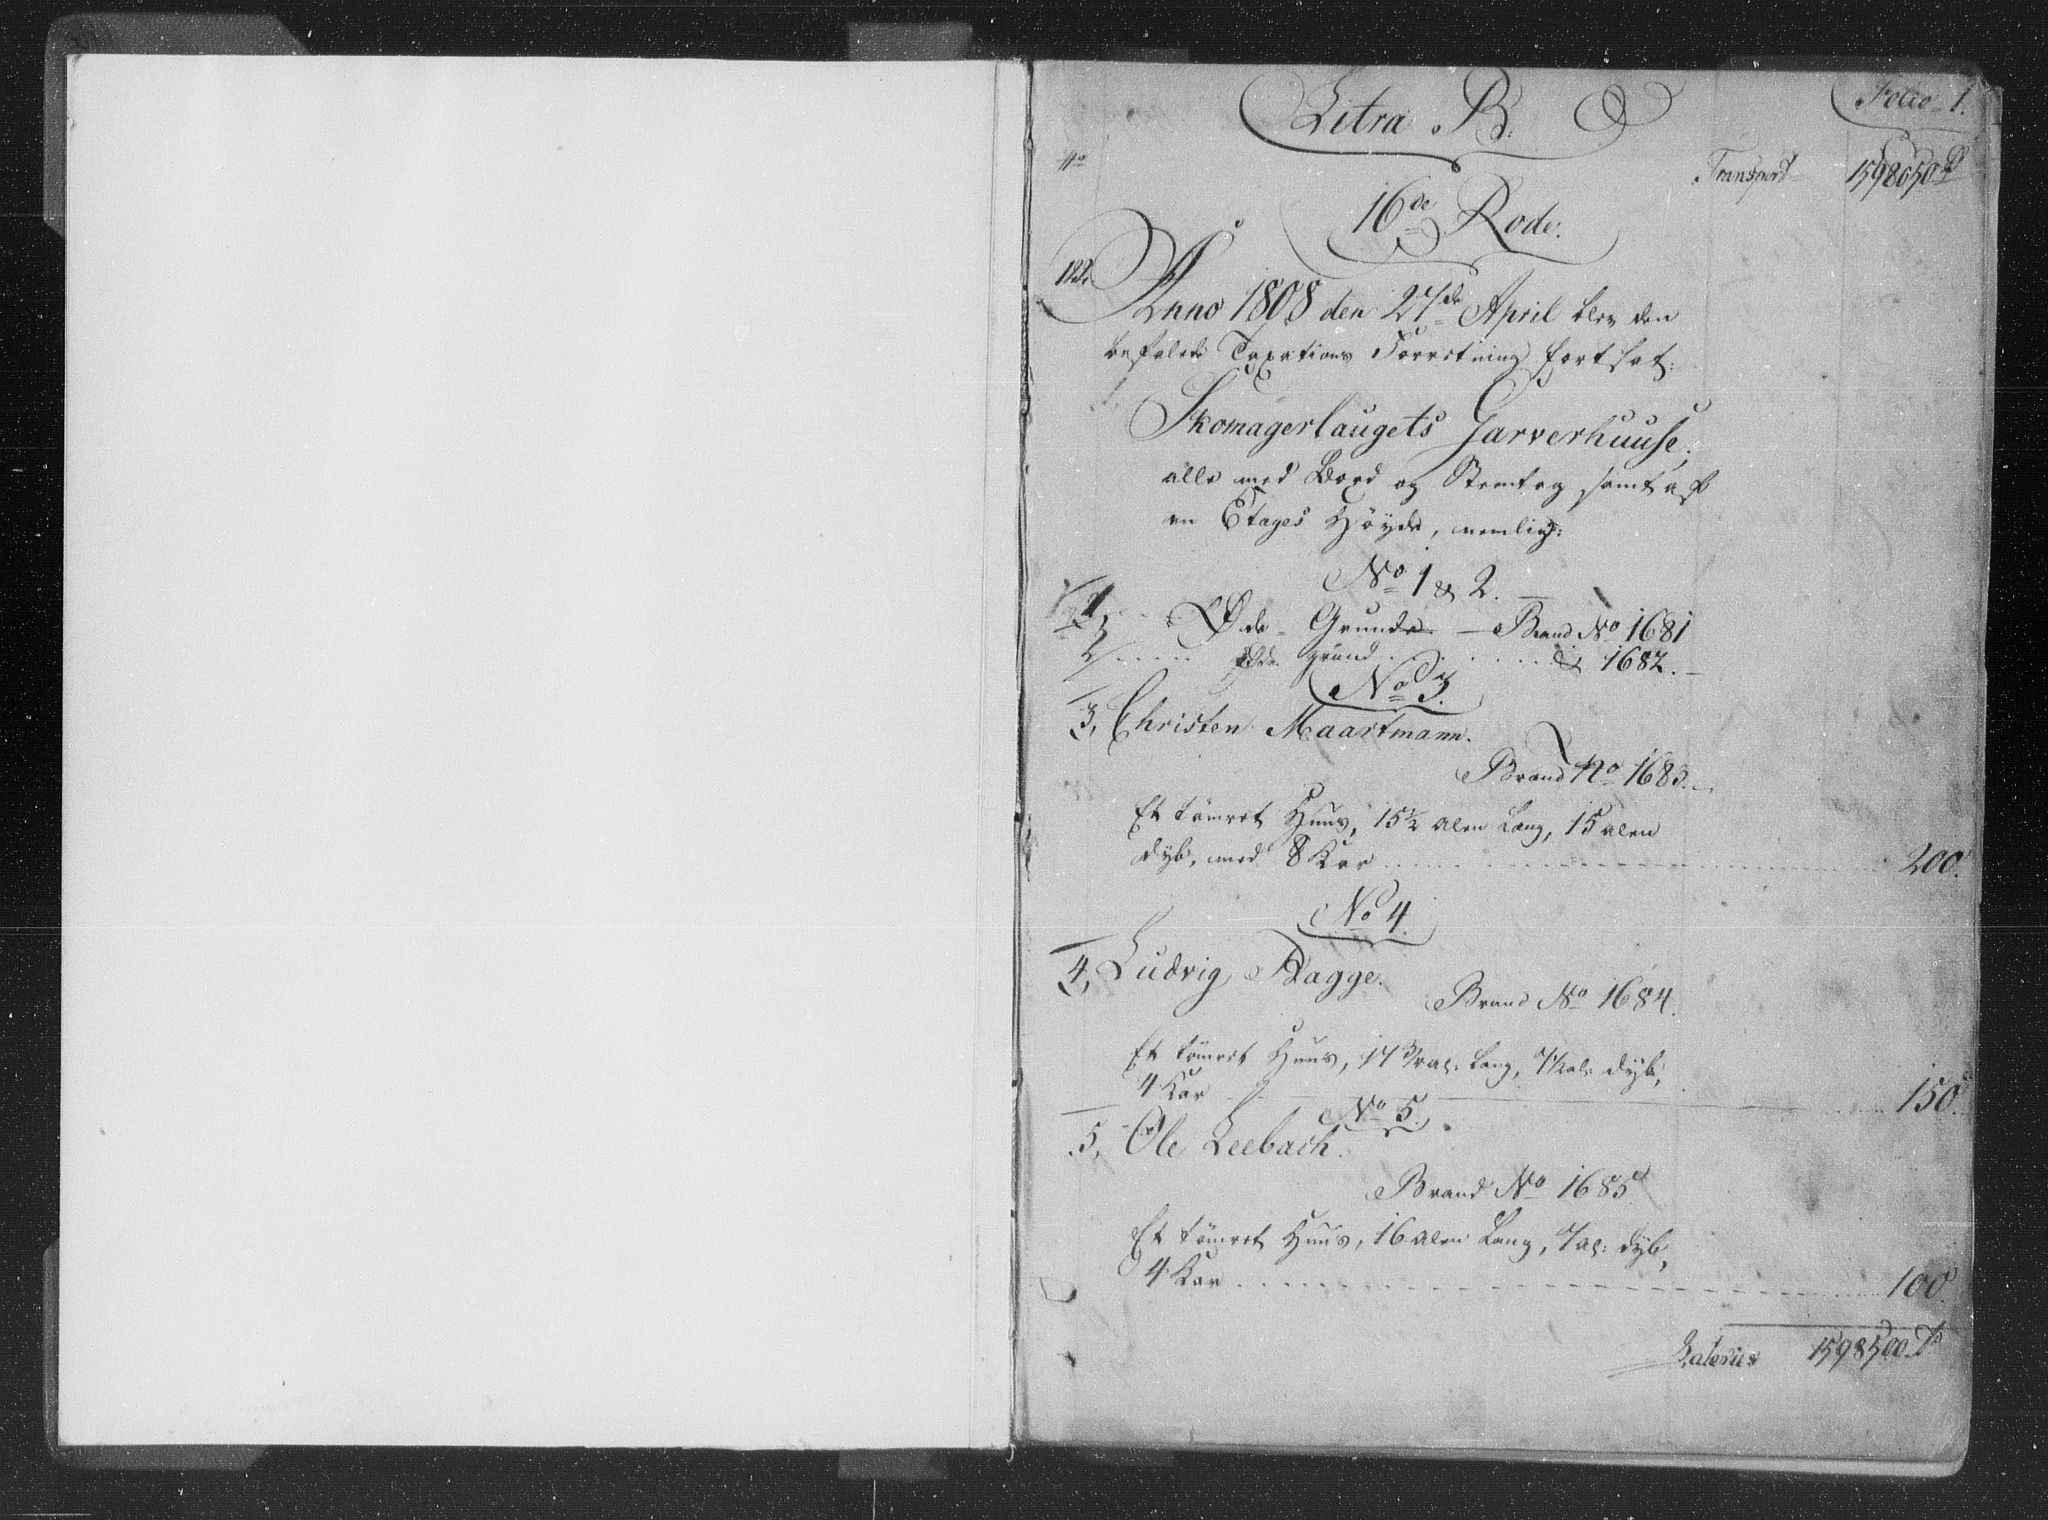 Folio 1.
Litra B.
No Transport 1598050 rd
16de Rode.
122. Anno 1808 den 27de April blev den
befalede Taxations Forretning fortsat:
Skomagerlaugets Garverhuuse,
alle med Bord og Steentag samt af
en Etages Höyde, nemlig:
No 1 & 2.
1 Øde Grunde — Brand No 1681
2 Øde grund . . . . . . do 1682. —
No 3.
3, Christen Maartmann.
Brand No 1683.
Et tömret Huus, 15 1/2 alen lang, 15 alen
dyb, med 8 Kar 200.
No 4.
4, Ludvig Plagge.
Brand No 1684.
Et tömret Huus, 17 3/4 al: lang, 7 1/2 al: dyb,
4 Kar 150.
No 5.
5, Ole Leebach.
Brand No 1685
Et tömret Huus, 16 alen lang, 7 al: dyb,
4 Kar 100.
Laterus 1598500 rd